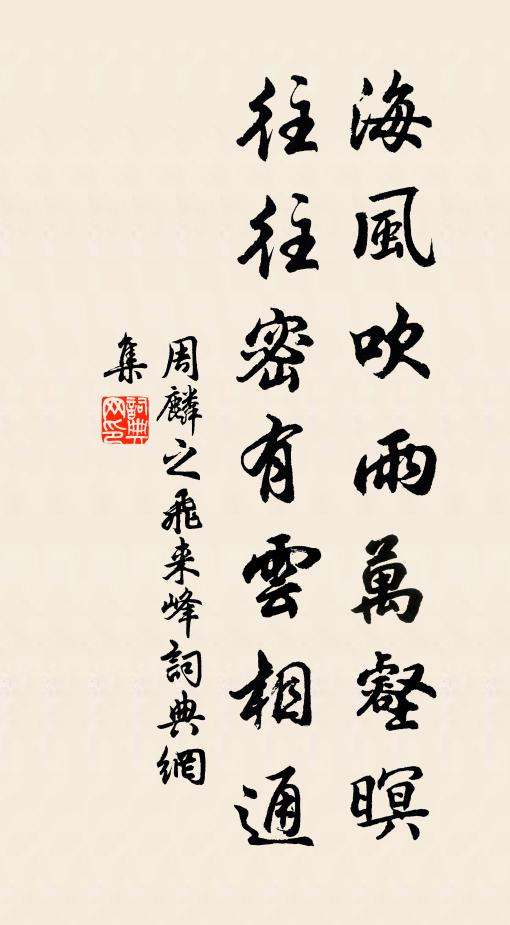 海風吹雨萬壑暝
往往密有雲相通
周麟之飛来峰詞典網
集
詞典
网印